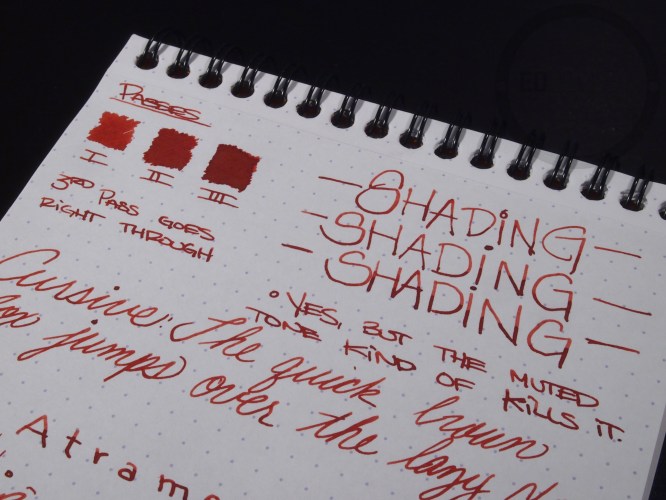 PASSES
I II III
3RD PASS GOES
RIGHT THROUGH
— SHADiNG —
— SHADiNG —
— SHADiNG —
• YES, BUT THE MUTED
TONE KIND OF KILLS IT.
Cursive: The quick brown
fox jumps over the lazy d
Atrame